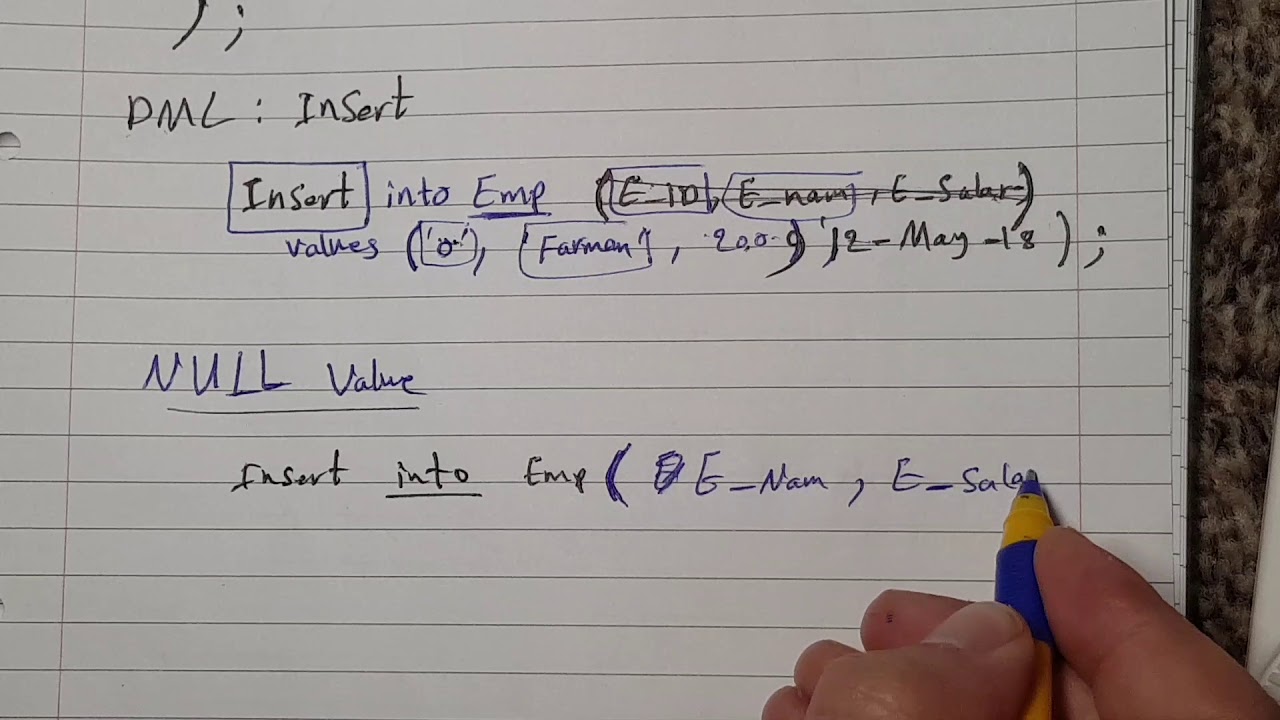 );
DML : Insert
Insert into Emp (E_ID, E_nam, E_Salar)
values ('0-'), 'Farman', 200.0) '12-May-18 );
NULL Value
Insert into Emp ( E_Nam , E_Sala